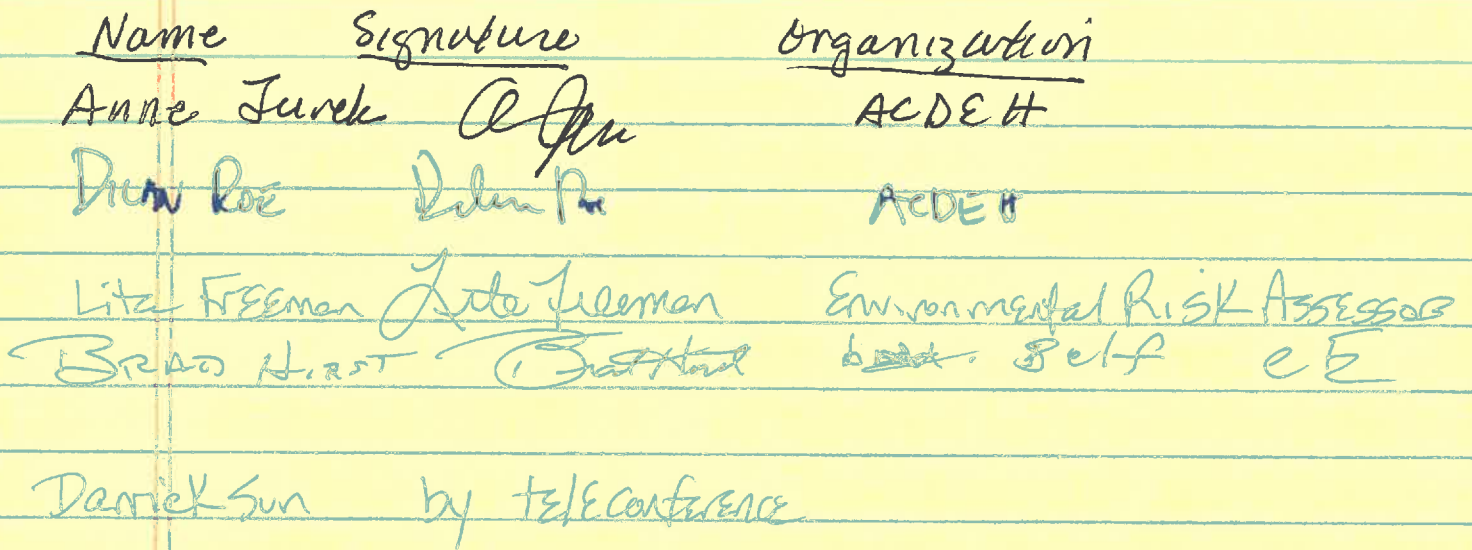 Name Signature Organization
Anne Jurek ACDEH
Dilan Roe Dilan Roe ACDEH
Lita Freeman Lita Freeman Environmental Risk Assessor
BRAD HIRST Brad Hirst Self
Darrick Sun by teleconference